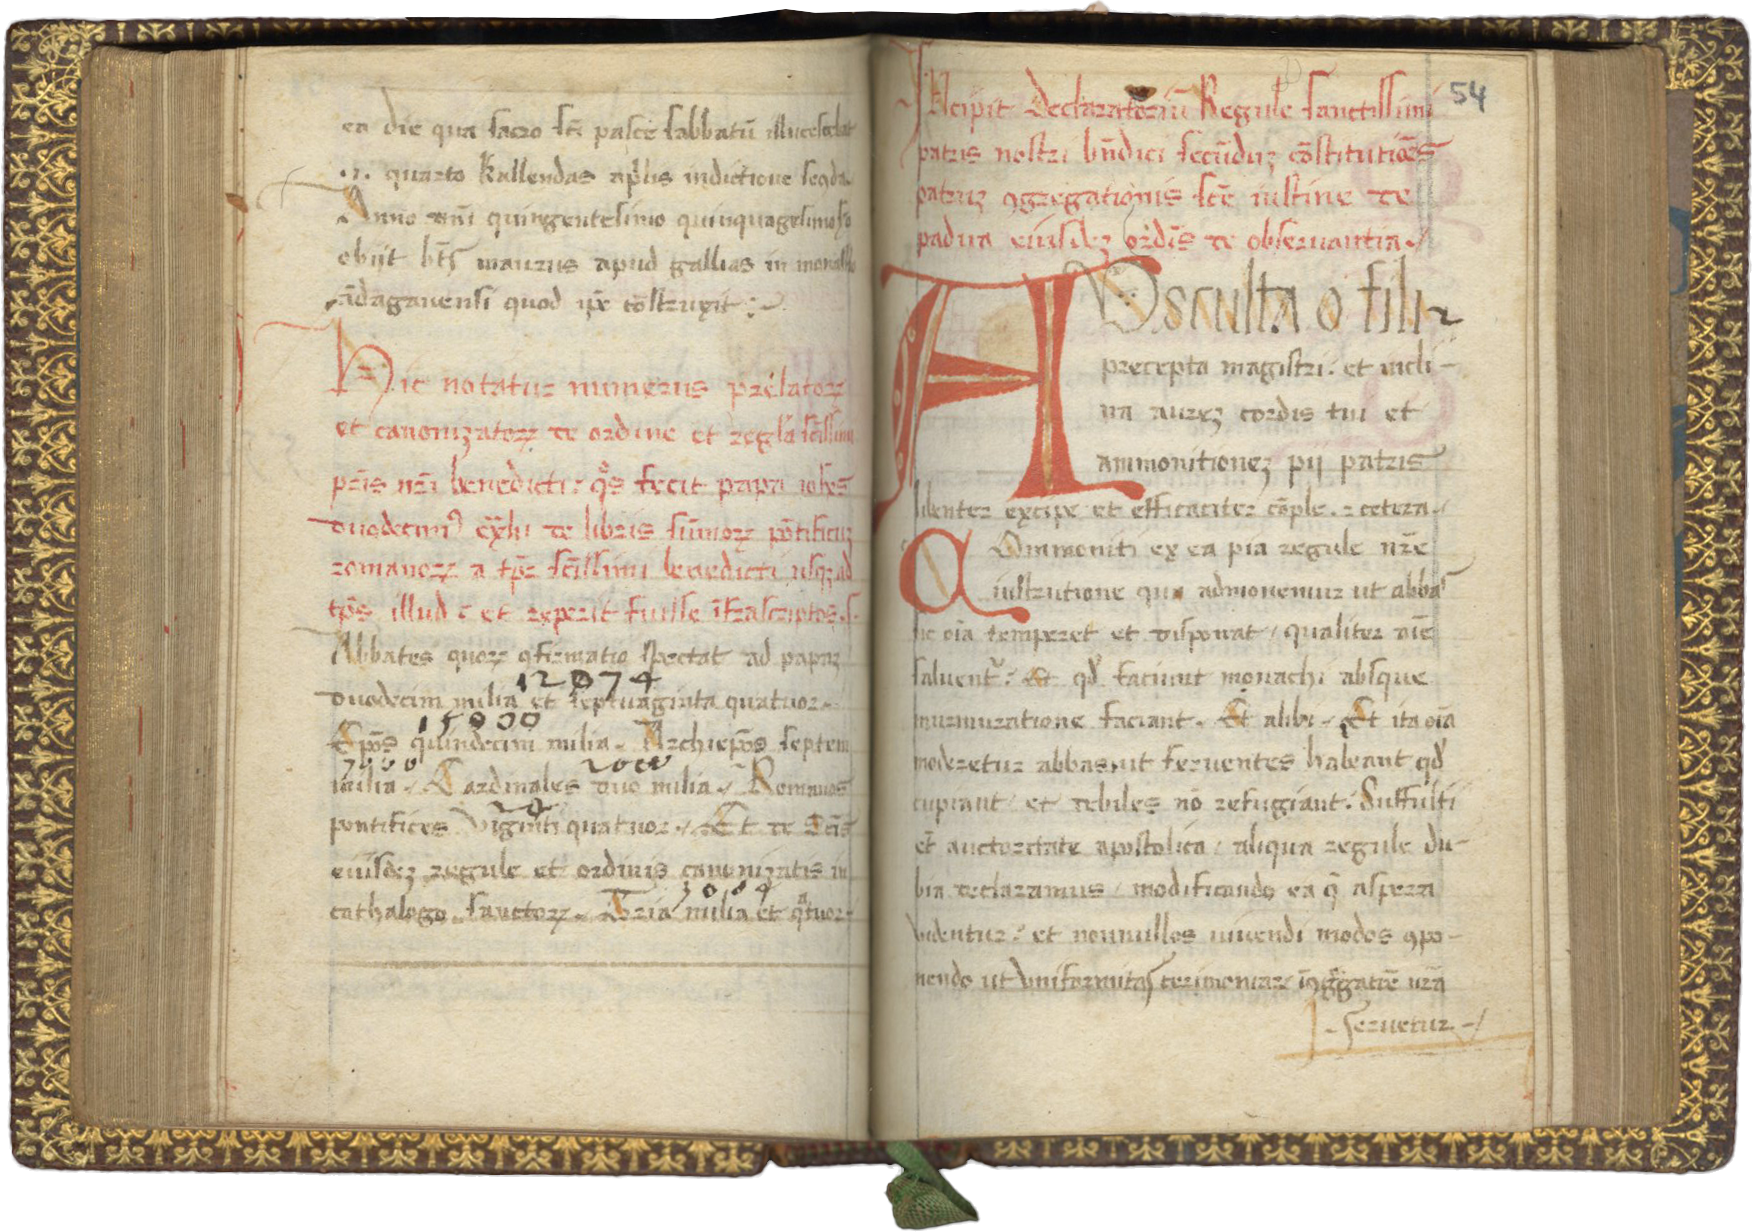 ea die qua sacro scī pascē sabbatū illucescebat
.i. quarto kallendas aplis indictione seqda
Anno dnī quingentesimo quinquagesimo
obijt bts maurus apud gallias in
ādagauensi quod ipē cōstruxit :~
Hic notatur numerus prelatorꝝ
et canonizatorꝝ de ordine et regla scīssimi
pr̄is nr̄i benedicti: q̊s fecit papa iohēs
duodecimꝰ de libris sūmorꝝ pōtificuꝫ
romanorꝝ a tpr scīssimi benedicti usqꝫ ad
tps illud et reperit fuisse īfrascriptos.
Abbates quorꝝ ꝯfirmatio spectat ad papaꝫ
12074
duodecim milia et septuaginta quatuor.
15000
Epōs quindecim milia. Archiepōs septem
7000 2000
milia. Cardinales duo milia. Romanos
24
pontifices viginti quatuor. Et de Scīs
eiusdeꝫ regule et ordinis canonizatis in
3004
cathalogo sanctorꝝ. Tria milia et qtuor.
54
INcipit Declaratoriū Regule sanctissimi
patris nostri bn̄dici secūduꝫ cōstitutiōēs
patruꝫ ꝯgregationis scē iustine de
padua eiusdeꝫ ordīs de obseruantia./
AUsculta o fili
precepta magistri: et incli-
na aureꝫ cordis tui et
ammonitioneꝫ pij patris
libenter excipe et efficaciter cōple. ꝛ cetera.
AAmmoniti ex ea pia regule nr̄e
iustrutione qua admonemur ut abbas
sic oīa temperet et disponat / qualiter aīe
saluent: Et qđ faciunt monachi absque
murmuratione faciant. Et alibi. Et ita oīa
moderetur abbas, ut feruentes habeant qđ
cupiant / et debiles nō refugiant. Suffulti
et auctoritate apostolica / aliqua regule du-
bia declaramus / modificando ea q̄ aspera
videntur: et nonnullos uiuendi modos ꝯpo-
nendo ut vniformitas cerimoniarꝝ īꝯg̃gatiē nr̄a
seruetur -/